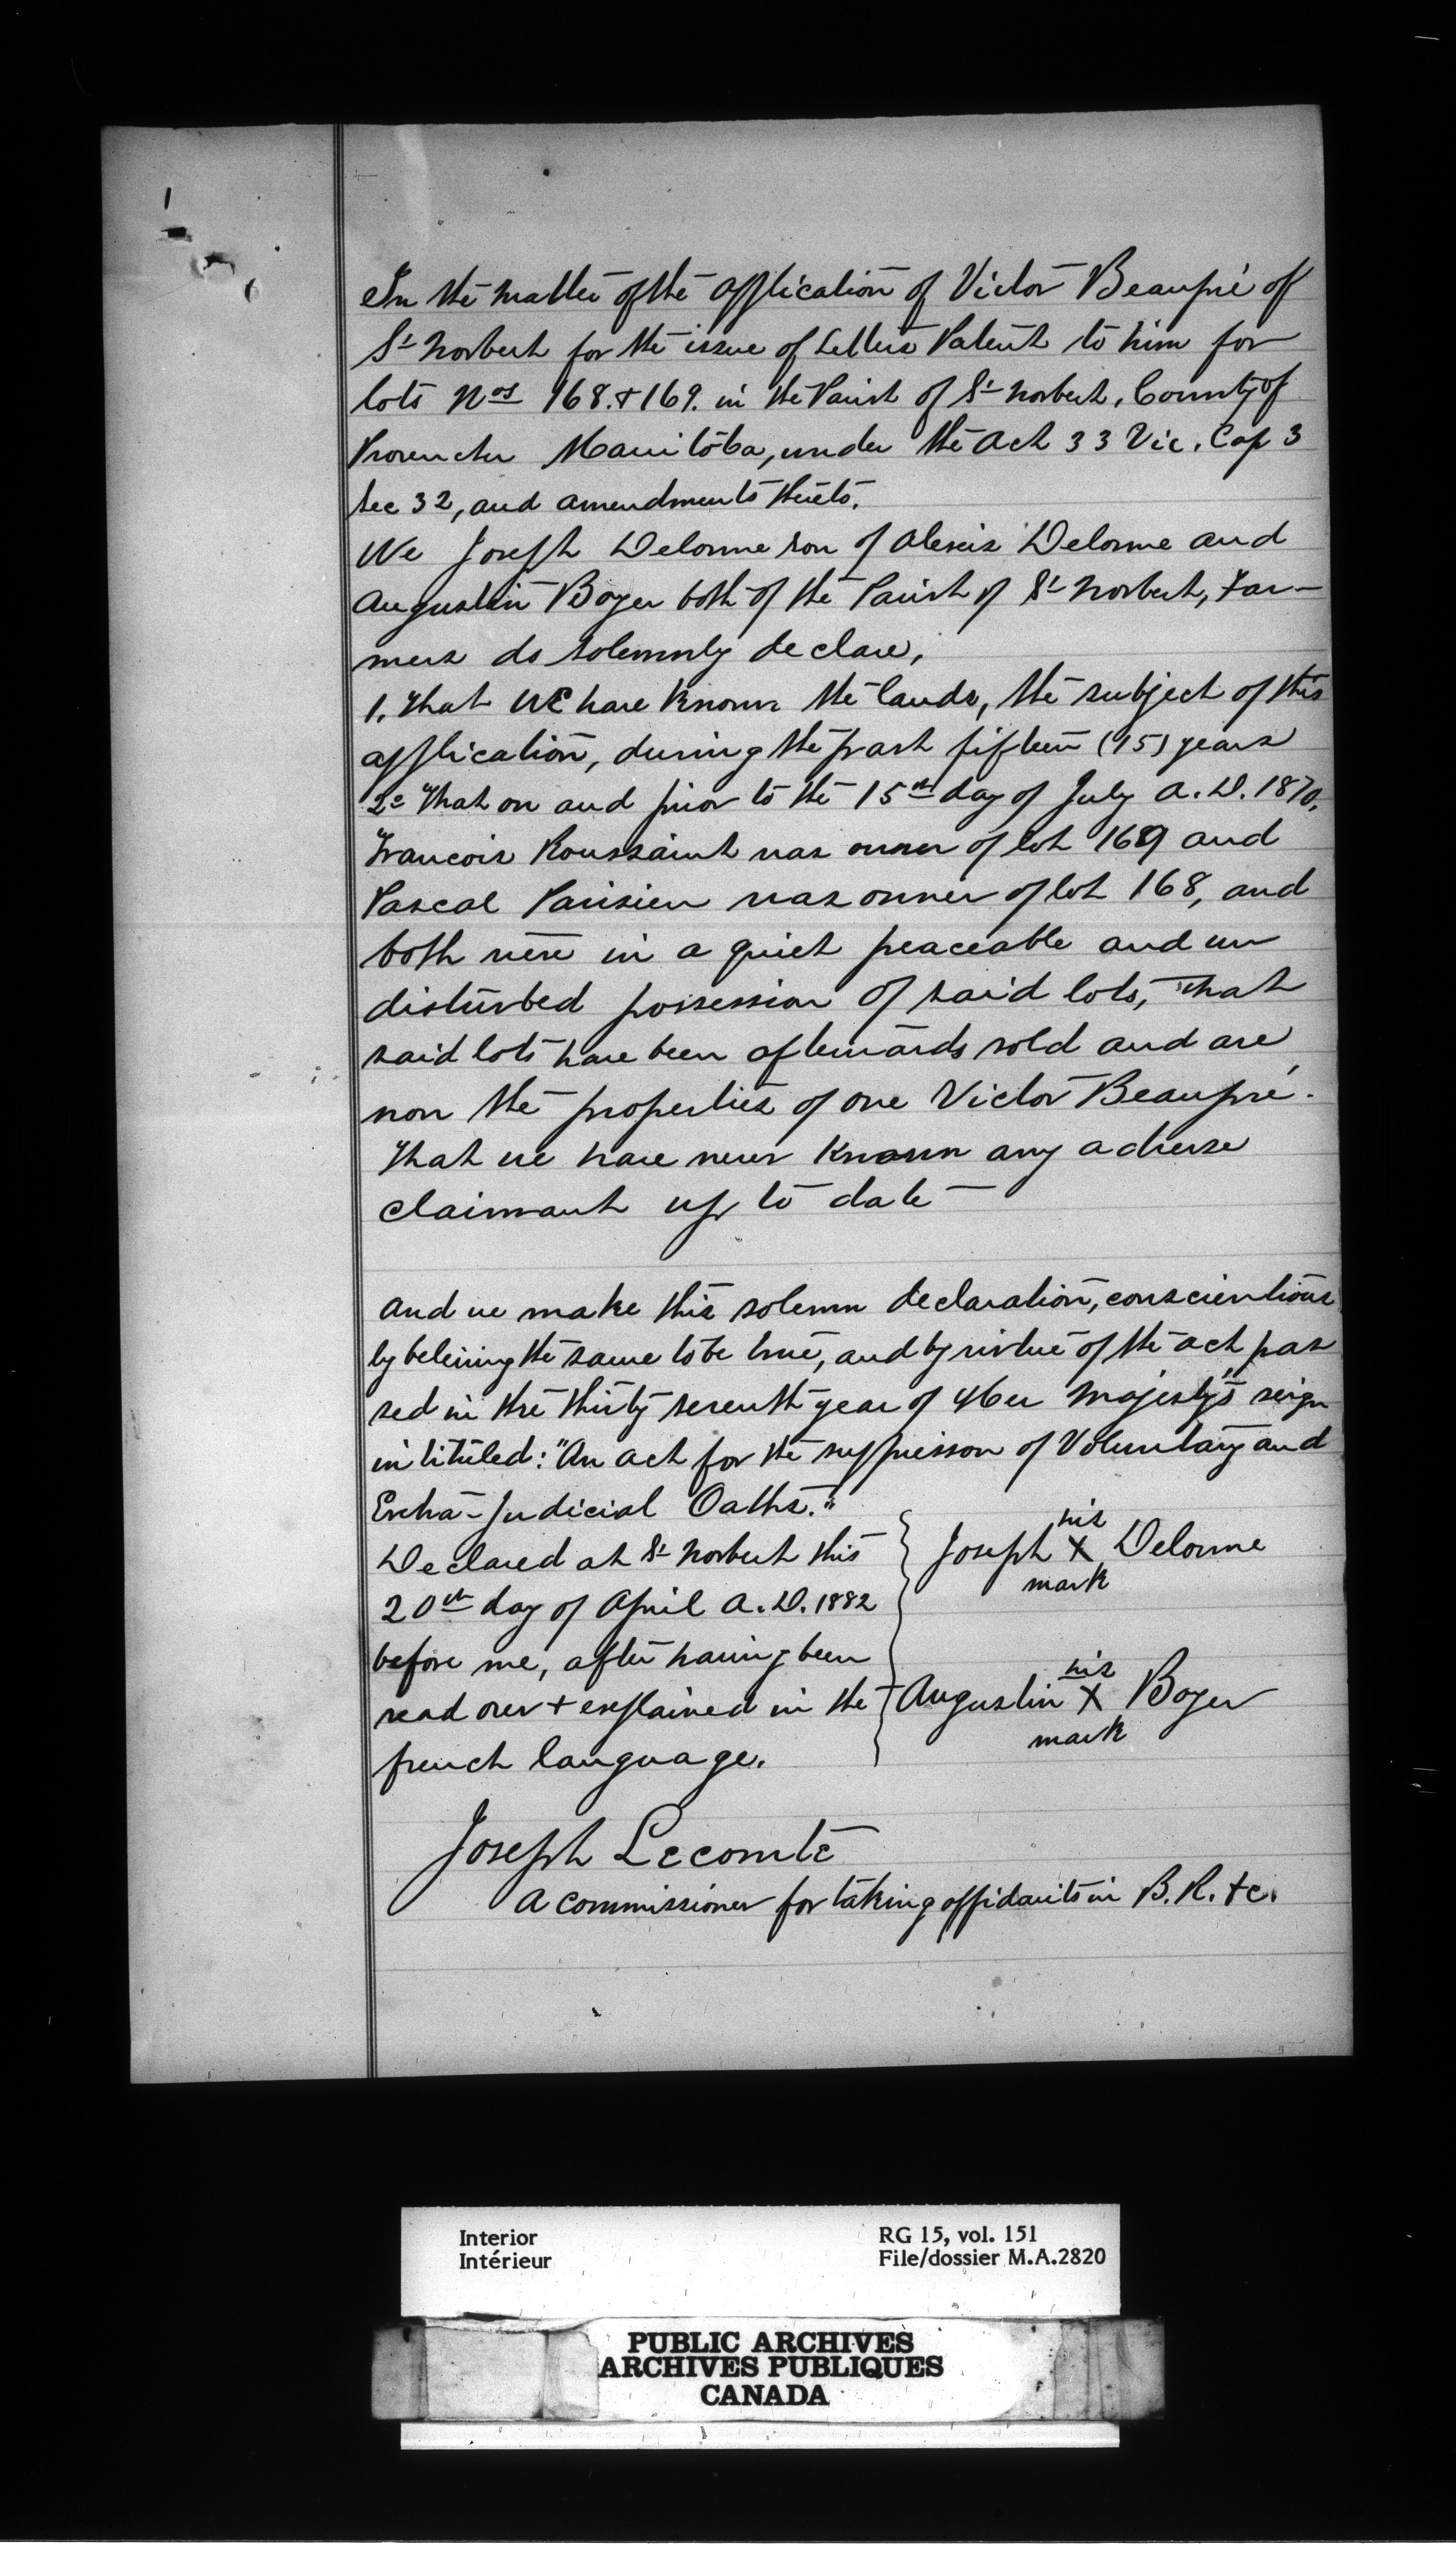 In the matter of the application of Victor Beaupré of
St Norbert for the issue of Letters Patent to him for
lots Nos 168. & 169. in the Parish of St Norbert, County of
Provencher Manitoba, under the Act 33 Vic. Cap 3
Sec 32, and amendments thereto.
We Joseph Delorme son of Alexis Delorme and
Augustin Boyer both of the Parish of St Norbert, Far-
mers do solemnly declare,
1. That we have known the lands, the subject of this
application, during the past fifteen (15) years
2° That on and prior to the 15th day of July A.D. 1870,
Francois Roussaint was owner of lot 169 and
Pascal Parisien was owner of lot 168, and
both were in a quiet peaceable and un
disturbed possession of said lots, that
said lots have been afterwards sold and are
now the properties of one Victor Beaupré.
That we have never known any adverse
claimant up to date —
And we make this solemn declaration, conscientious
ly beleiving the same to be true, and by virtue of the act pas
sed in the thirty seventh year of Her Majesty's reign
intituled: "An act for the suppression of Voluntary and
Extra-Judicial Oaths."
Declared at St Norbert this
20th day of April A.D. 1882
before me, after having been
read over & explained in the
french language.
his
Joseph X Delorme
mark
his
Augustin X Boyer
mark
Joseph Lecomte
A commissioner for taking affidavits in B.R. &c.
Interior
Intérieur
RG 15, vol. 151
File/dossier M.A.2820
PUBLIC ARCHIVES
ARCHIVES PUBLIQUES
CANADA